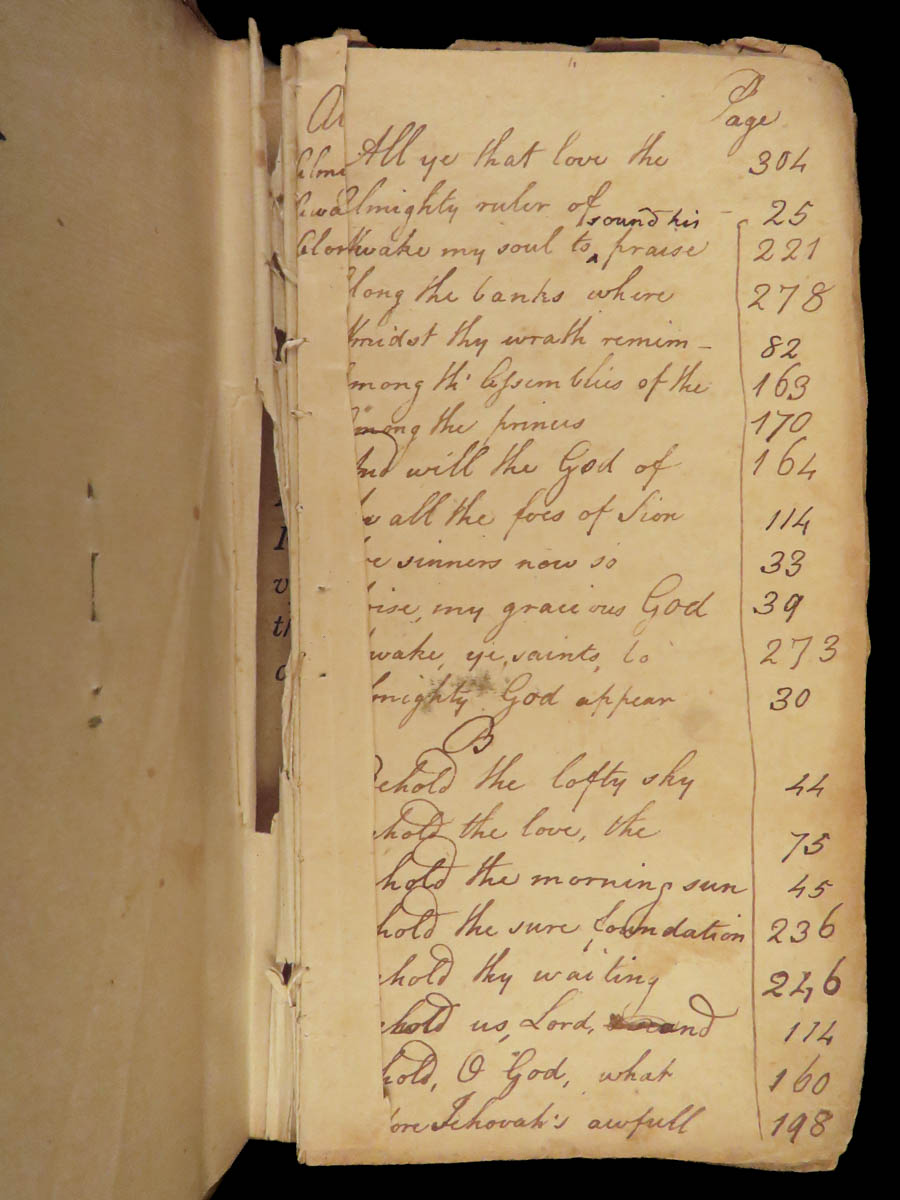 Page
All ye that love the 304
lmighty ruler of 25
sound his
wake my soul to ‸ praise 221
long the banks where 278
midst thy wrath remim– 82
mong th' Assemblies of the 163
mong the princes 170
nd will the God of 164
all the foes of Sion 114
re sinners now so 33
rise, my gracious God 39
wake, ye, saints, to 273
lmighty God appear 30
B
Behold the lofty sky 44
ehold the love, the 75
hold the morning sun 45
hold the sure foundation 236
ehold thy waiting 246
ehold us, Lord, and 114
hold, O God, what 160
fore Jehovah's awfull 198